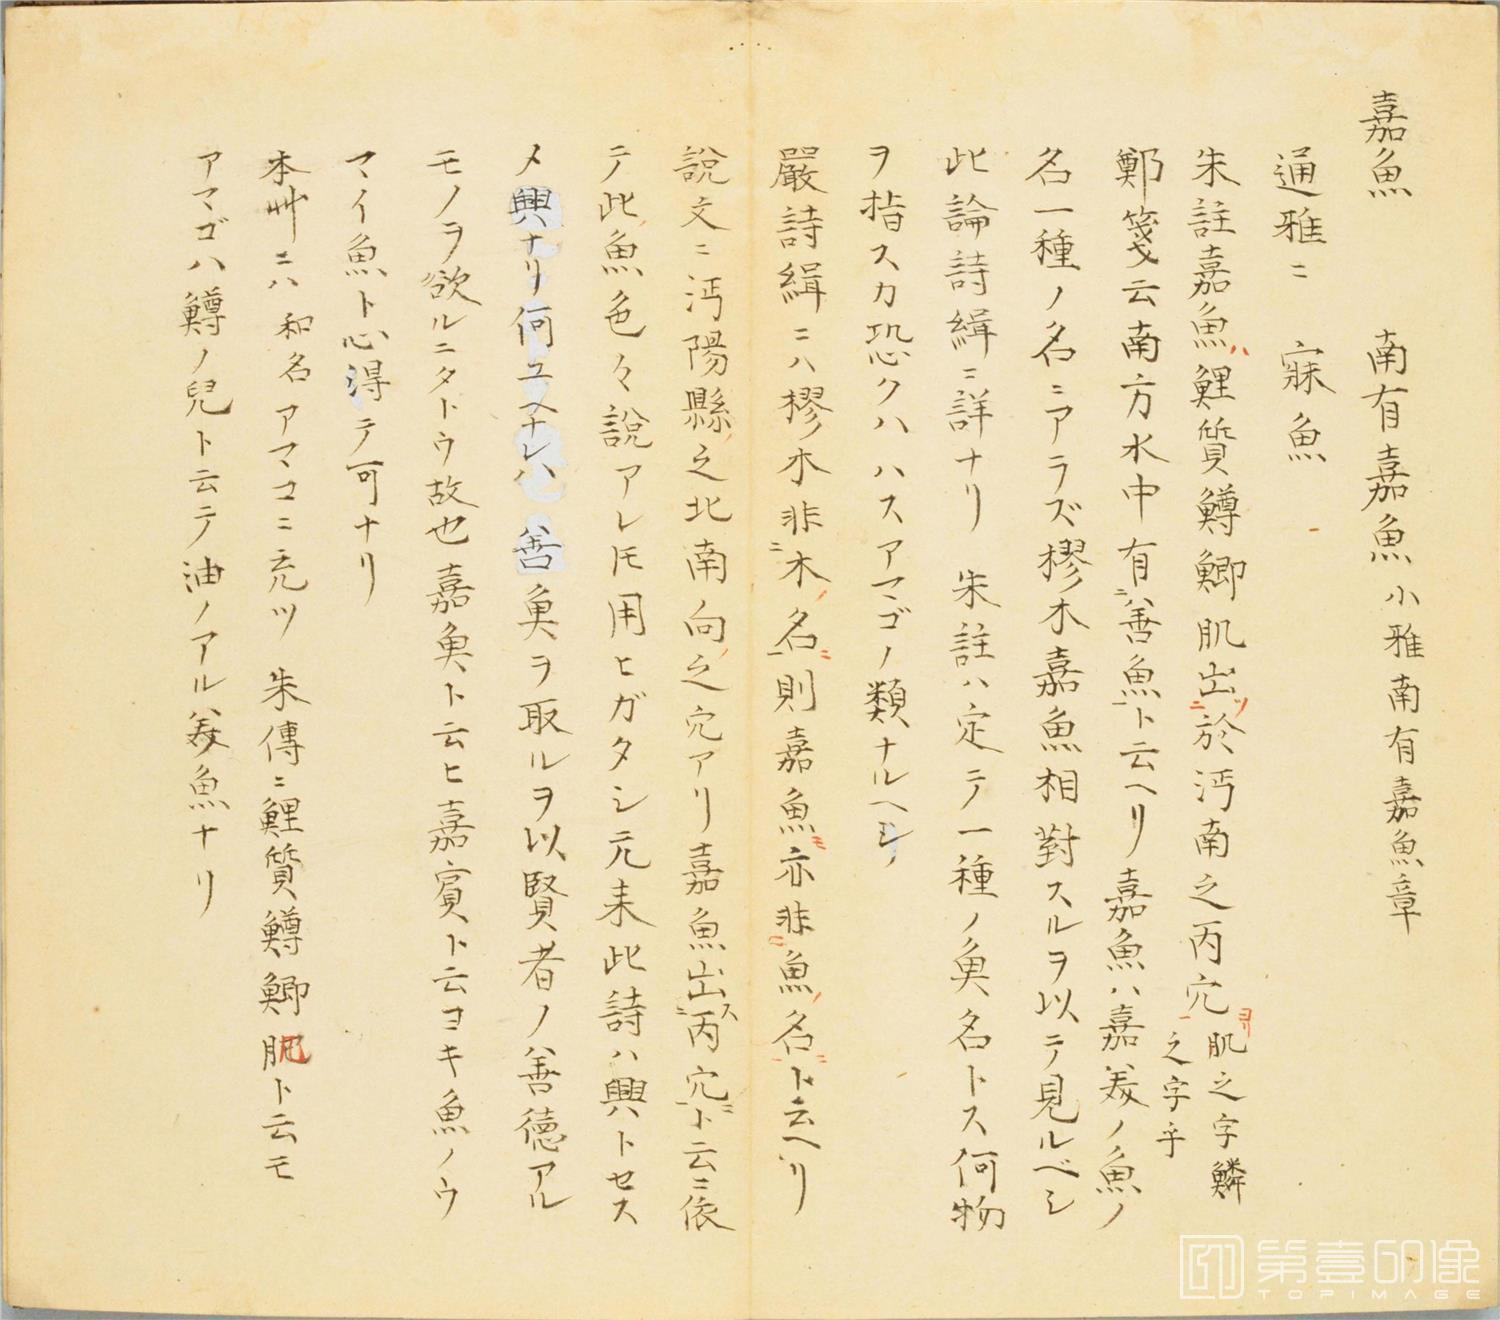 嘉魚　南有嘉魚 小雅南有嘉魚章
通雅ニ　寐魚
朱註嘉魚ハ鯉質鱒鯽肌出ツ於沔南之丙穴ヨリ 肌之字鱗之字乎
鄭箋云南方水中有善魚ト云ヘリ嘉魚ハ嘉美ノ魚ノ
名一種ノ名ニアラズ樛木嘉魚相對スルヲ以テ見ルベシ
此論詩緝ニ詳ナリ　朱註ハ定テ一種ノ魚名トス何物
ヲ指スカ恐クハハスアマゴノ類ナルヘシ
嚴詩緝ニハ樛木非木名則嘉魚亦非魚名ト云ヘリ
說文ニ沔陽縣之北南向之穴アリ嘉魚出丙穴ト云ニ依
テ此魚色々說アレ𪜈用ヒガタシ元来此詩ハ興トセス
メ興ナリ何ユヘナレハ善魚ヲ取ルヲ以賢者ノ善徳アル
モノヲ欲ルニタトウ故也嘉魚ト云ヒ嘉賓ト云ヨキ魚ノウ
マイ魚ト心得テ可ナリ
本艸ニハ和名アマコニ充ツ　朱傳ニ鯉質鱒鯽肌ト云モ
アマゴハ鱒ノ兒ト云テ油ノアル美魚ナリ
第壹印像
TOPIMAGE